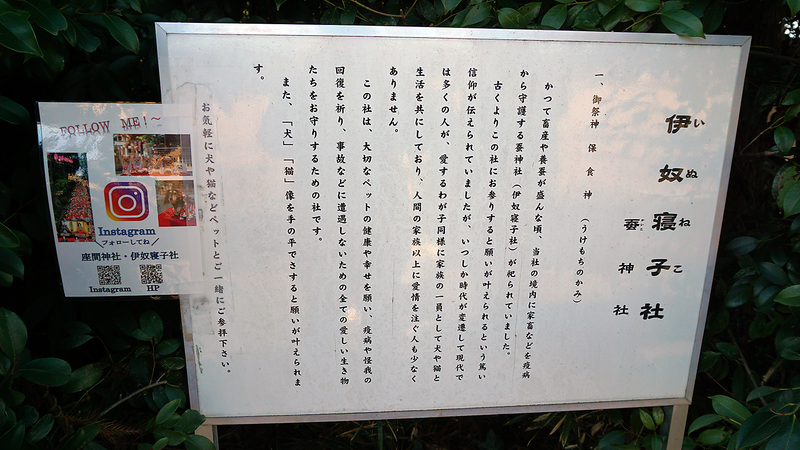 伊奴寝子社
いぬねこ
蚕神社
一、御祭神 保食神 (うけもちのかみ)
かつて畜産や養蚕が盛んな頃、当社の境内に家畜などを疫病
から守護する蚕神社(伊奴寝子社)が祀られていました。
古くよりこの社にお参りすると願いが叶えられるという篤い
信仰が伝えられていましたが、いつしか時代が変遷して現代で
は多くの人が、愛するわが子同様に家族の一員として犬や猫と
生活を共にしており、人間の家族以上に愛情を注ぐ人も少なく
ありません。
この社は、大切なペットの健康や幸せを願い、疫病や怪我の
回復を祈り、事故などに遭遇しないための全ての愛しい生き物
たちをお守りするための社です。
また、「犬」「猫」像を手の平でさすると願いが叶えられま
す。
お気軽に犬や猫などペットとご一緒にご参拝下さい。
FOLLOW ME!~
Instagram
フォローしてね
座間神社・伊奴寝子社
Instagram
HP